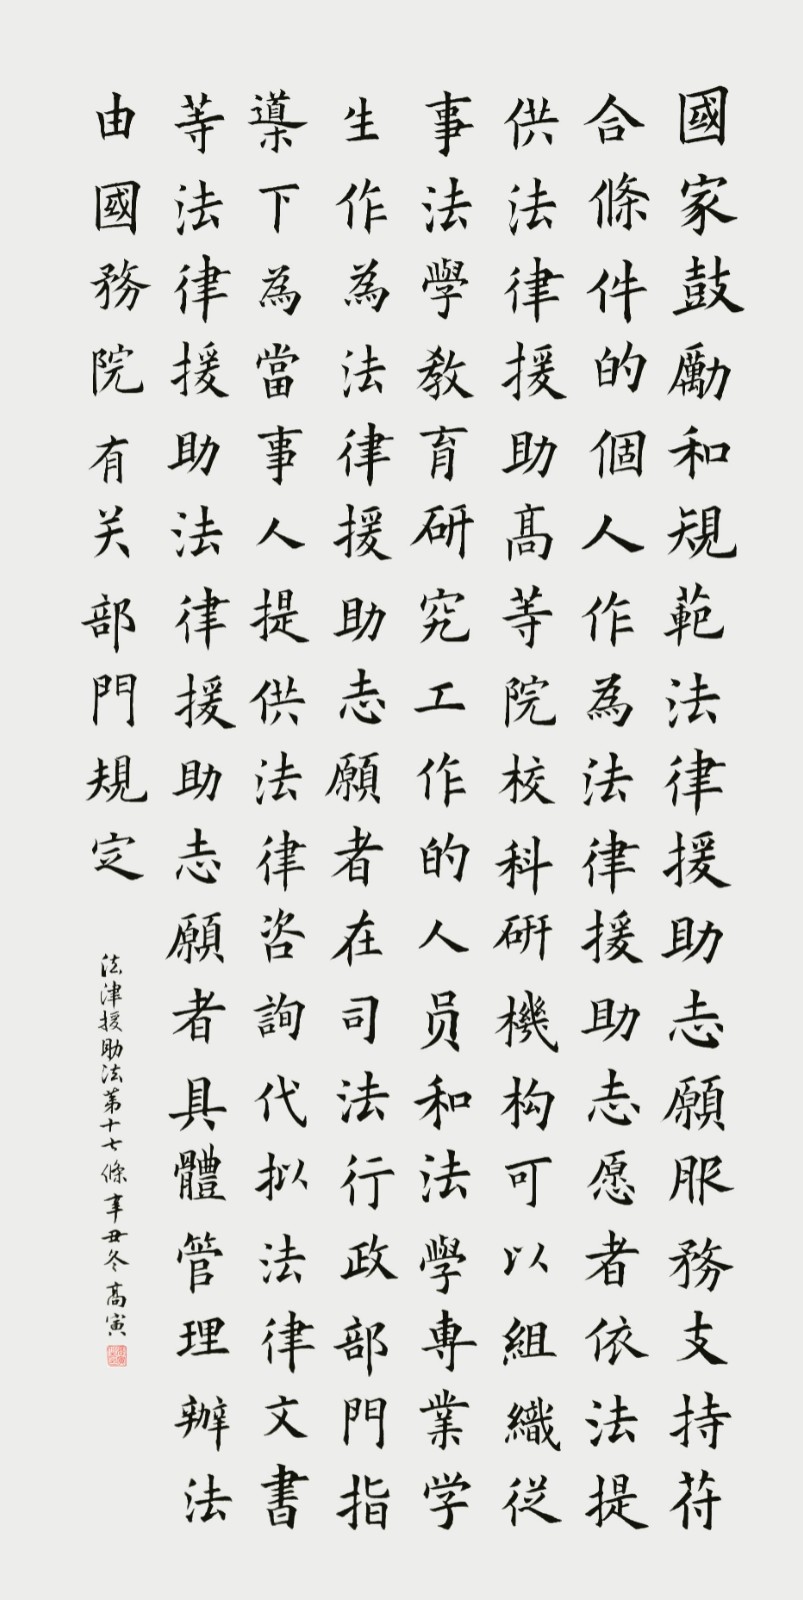 國家鼓勵和規範法律援助志願服務支持苻
合條件的個人作為法律援助志愿者依法提
供法律援助高等院校科研機构可以組織從
事法學教育研究工作的人员和法學專業学
生作為法律援助志願者在司法行政部門指
導下為當事人提供法律咨詢代拟法律文書
等法律援助法律援助志願者具體管理辦法
由國務院有关部門規定
法律援助法第十七條 辛丑冬 高寅